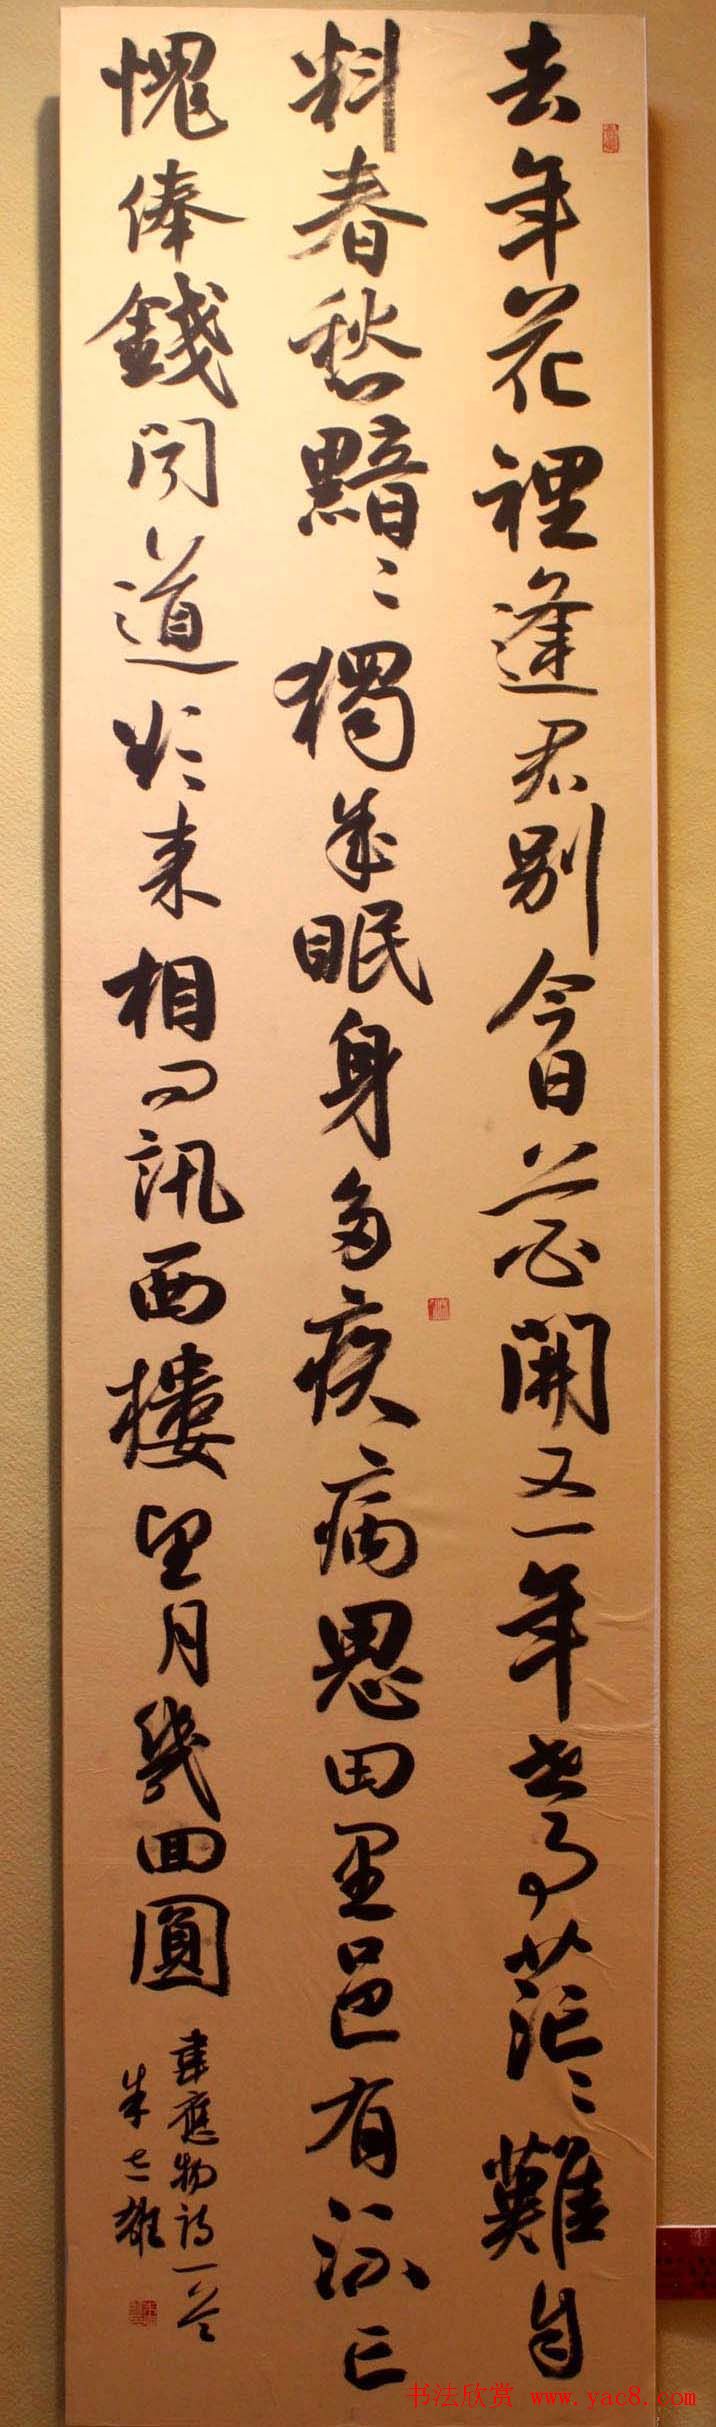 去年花裡逢君別今日花開又一年世事茫〻難自
料春愁黯〻獨成眠身多疾病思田里邑有流亡
愧俸錢聞道欲来相問訊西樓望月幾回圓
韋應物詩一首
朱士雄
书法欣赏 www.yac8.com